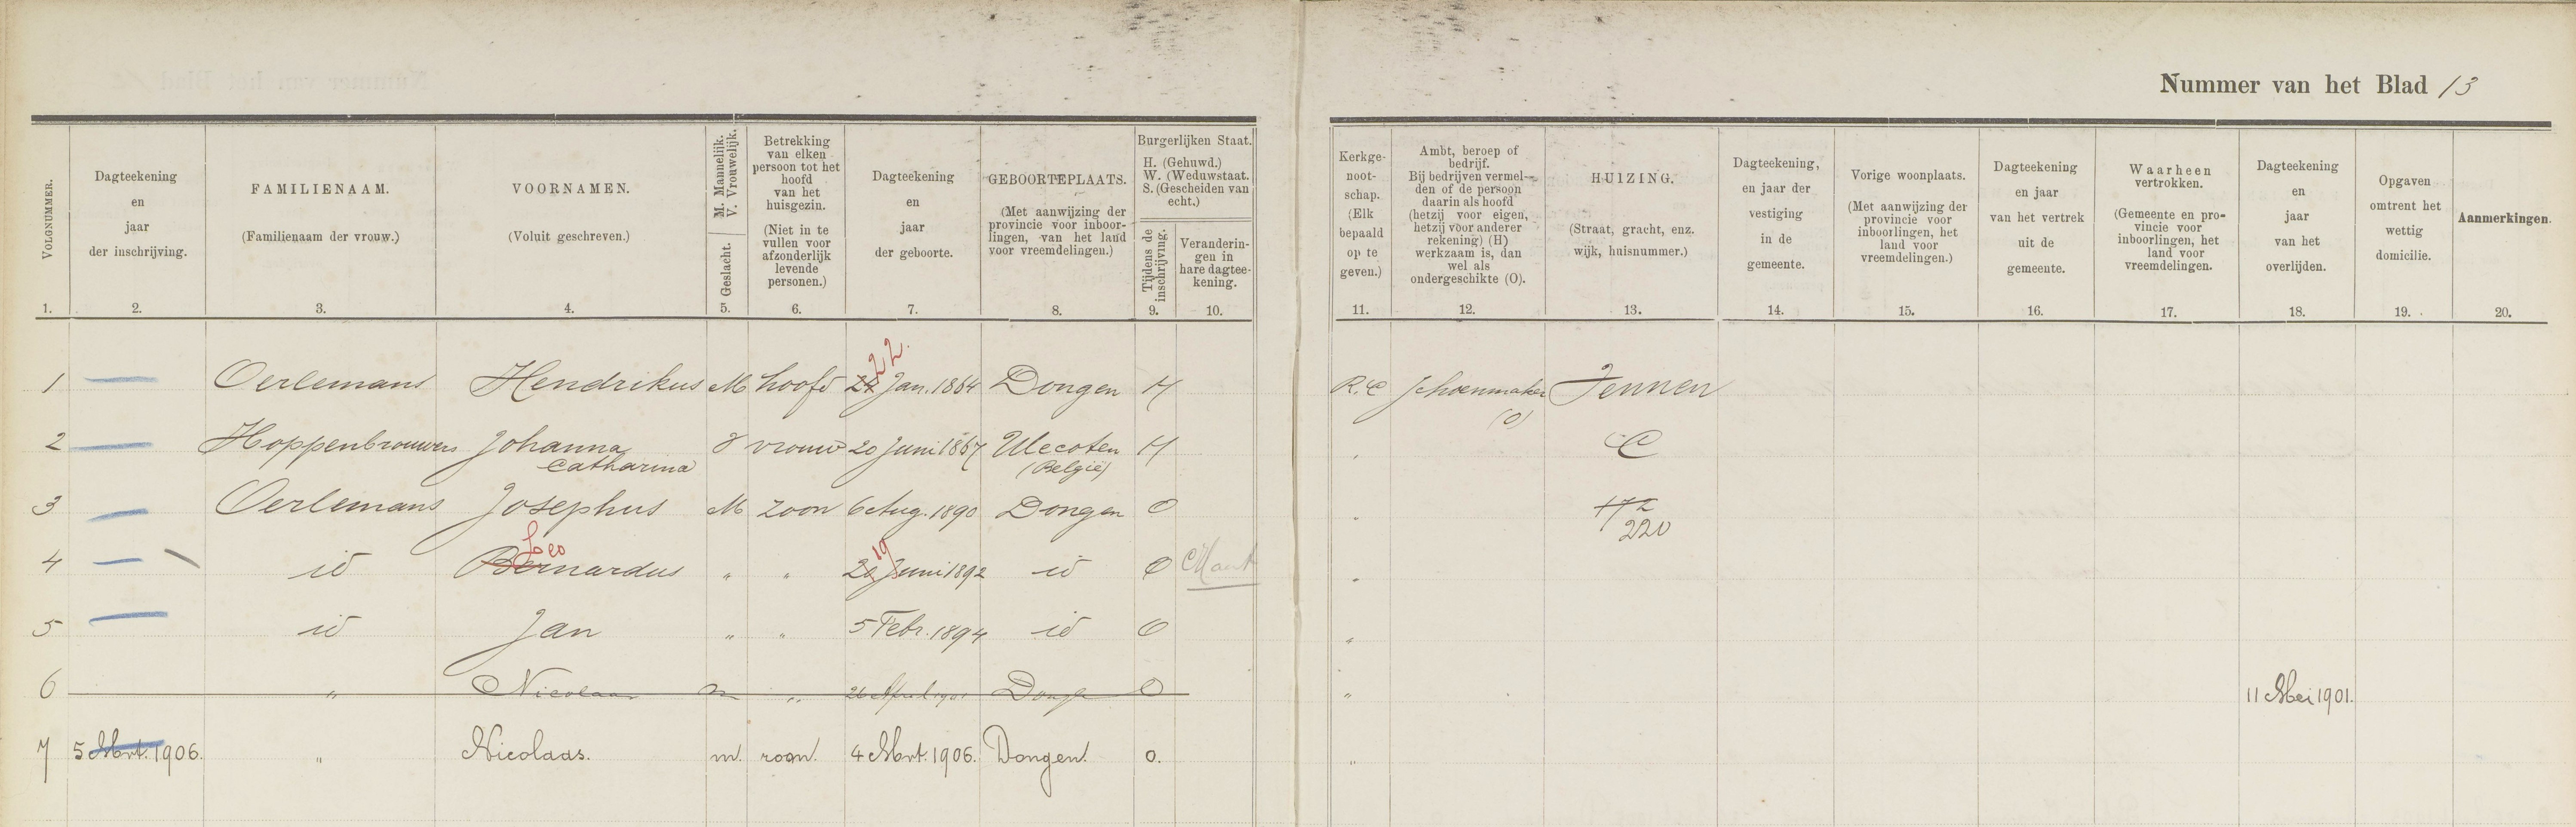 Nummer van het Blad 13
VOLGNUMMER.
1.
Dagteekening
en
jaar
der inschrijving.
2.
FAMILIENAAM.
(Familienaam der vrouw.)
3.
VOORNAMEN.
(Voluit geschreven.)
4.
M. Mannelijk.
V. Vrouwelijk.
Geslacht.
5.
Betrekking
van elken
persoon tot het
hoofd
van het
huisgezin.
(Niet in te
vullen voor
afzonderlijk
levende
personen.)
6.
Dagteekening
en
jaar
der geboorte.
7.
GEBOORTEPLAATS.
(Met aanwijzing der
provincie voor inboor-
lingen, van het land
voor vreemdelingen.)
8.
Burgerlijken Staat.
H. (Gehuwd.)
W. (Weduwstaat.
S. (Gescheiden van
echt.)
Tijdens de
inschrijving.
9.
Veranderin-
gen in
hare dagtee-
kening.
10.
Kerkge-
noot-
schap.
(Elk
bepaald
op te
geven.)
11.
Ambt, beroep of
bedrijf.
Bij bedrijven vermel-
den of de persoon
daarin als hoofd
(hetzij voor eigen,
hetzij voor anderer
rekening) (H)
werkzaam is, dan
wel als
ondergeschikte (O).
12.
HUIZING.
(Straat, gracht, enz.
wijk, huisnummer.)
13.
Dagteekening,
en jaar der
vestiging
in de
gemeente.
14.
Vorige woonplaats.
(Met aanwijzing der
provincie voor
inboorlingen, het
land voor
vreemdelingen.)
15.
Dagteekening
en jaar
van het vertrek
uit de
gemeente.
16.
Waarheen
vertrokken.
(Gemeente en pro-
vincie voor
inboorlingen, het
land voor
vreemdelingen.
17.
Dagteekening
en
jaar
van het
overlijden.
18.
Opgaven
omtrent het
wettig
domicilie.
19.
Aanmerkingen.
20.
22.
1 Oerlemans Hendrikus M hoofd 24 Jan. 1864 Dongen H R.C Schoenmaker Jennen
(O)
2 Hoppenbrouwers Johanna V vrouw 20 Juni 1867 Ulecoten H C
Catharina (België)
3 Oerlemans Josephus M zoon 6 Aug. 1890 Dongen O 172
220
Leo 19
4 id Bernardus " " 20 Juni 1892 id O
5 id Jan " " 5 Febr. 1894 id O "
6 " Nicolaas m " 26 April 1901 Dongen O " 11 Mei 1901.
7 5 Mrt. 1906. " Nicolaas. m. zoon. 4 Mrt. 1906. Dongen. o. "